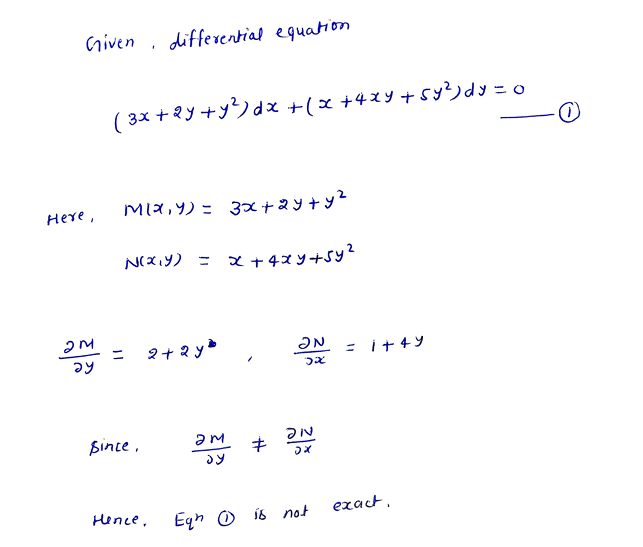 Given, differential equation
(3x + 2y + y²) dx + (x + 4xy + 5y²) dy = 0 —— ①
Here, M(x,y) = 3x + 2y + y²
N(x,y) = x + 4xy + 5y²
∂M/∂y = 2 + 2y , ∂N/∂x = 1 + 4y
Since, ∂M/∂y ≠ ∂N/∂x
Hence, Eqn ① is not exact.